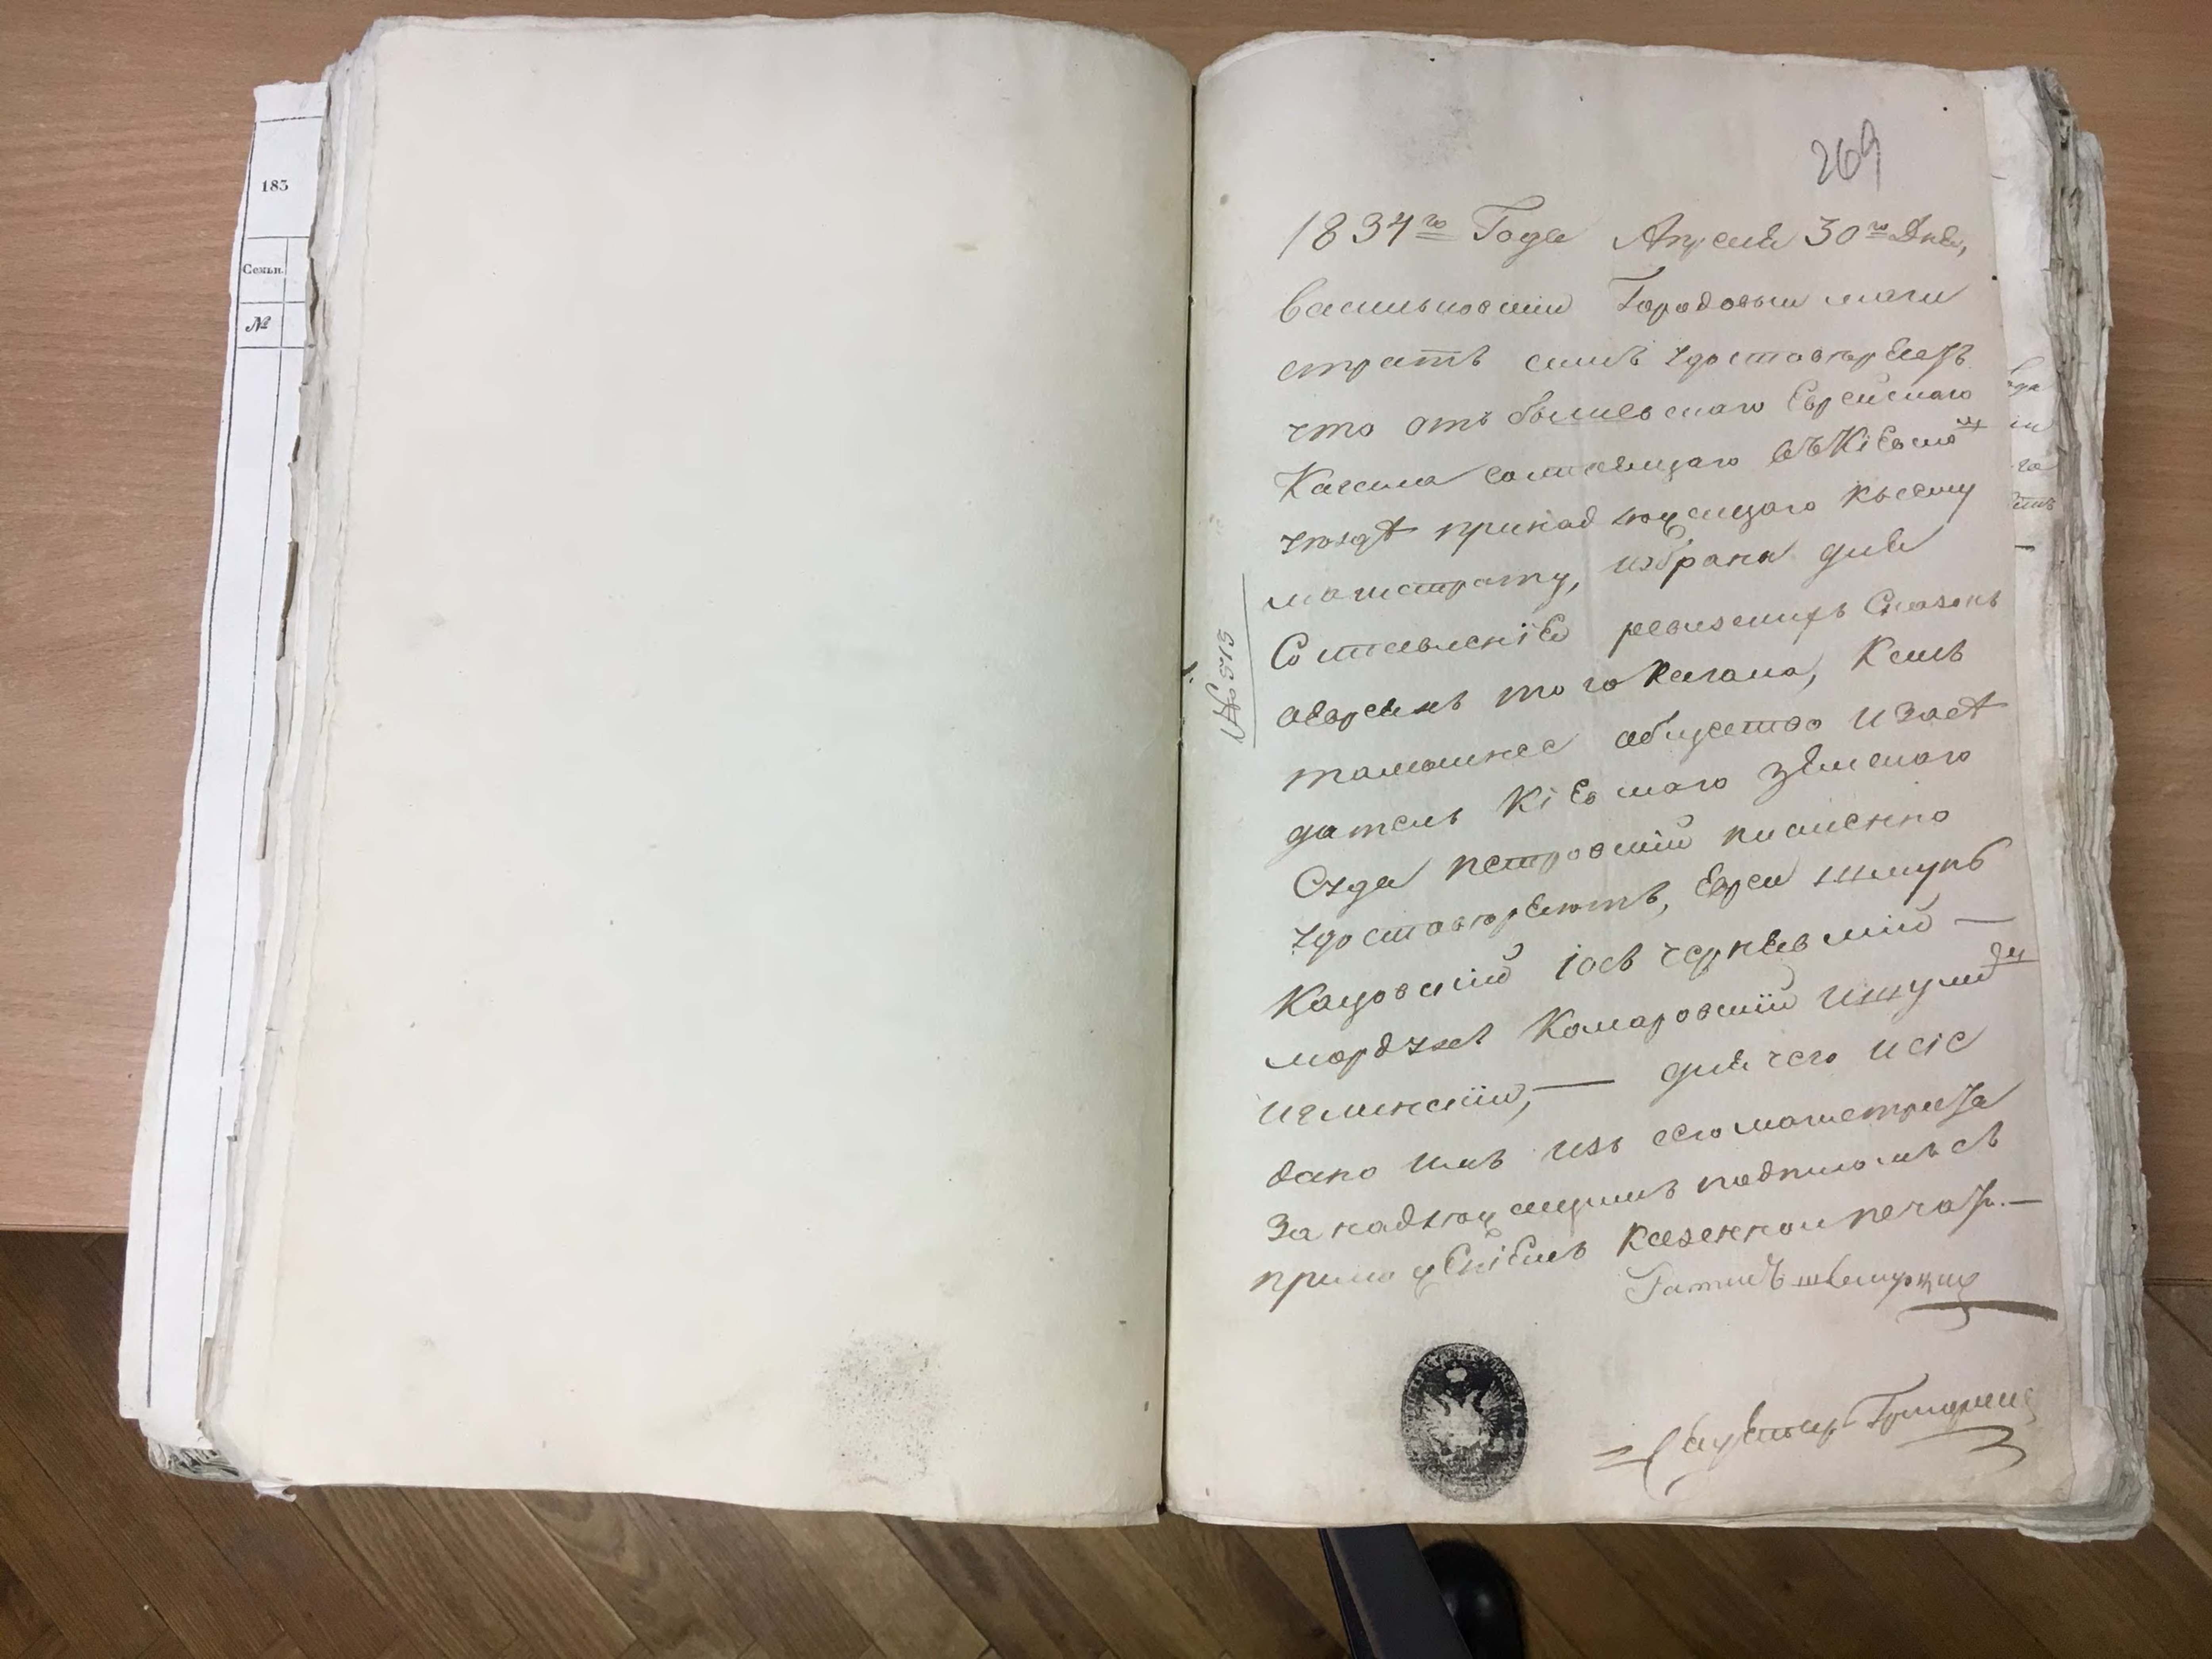 183
Семьи.
№
269
1834го Года Апреля 30го Дня,
васильковский Городовый маги
стратъ симъ удостоверяетъ
что отъ Еврейскаго
Кагала состоящаго въ Кіевском
уезде принадлежащаго къ сему
магистрату, избраны для
Составленія ревизскихъ Сказокъ
о евреяхъ того Кагала, какъ
тамошнее общество и засе
датель Кіевскаго земскаго
Суда петровскій писменно
удостоверяютъ, Евреи шмуль
Кацовскій іось чернявскій —
мордухъ Комаровскій
— для чего и сіе
дано имъ изъ сего магистрата
За надлежащимъ подписомъ съ
приложеніемъ казенной печати. —
№ 515